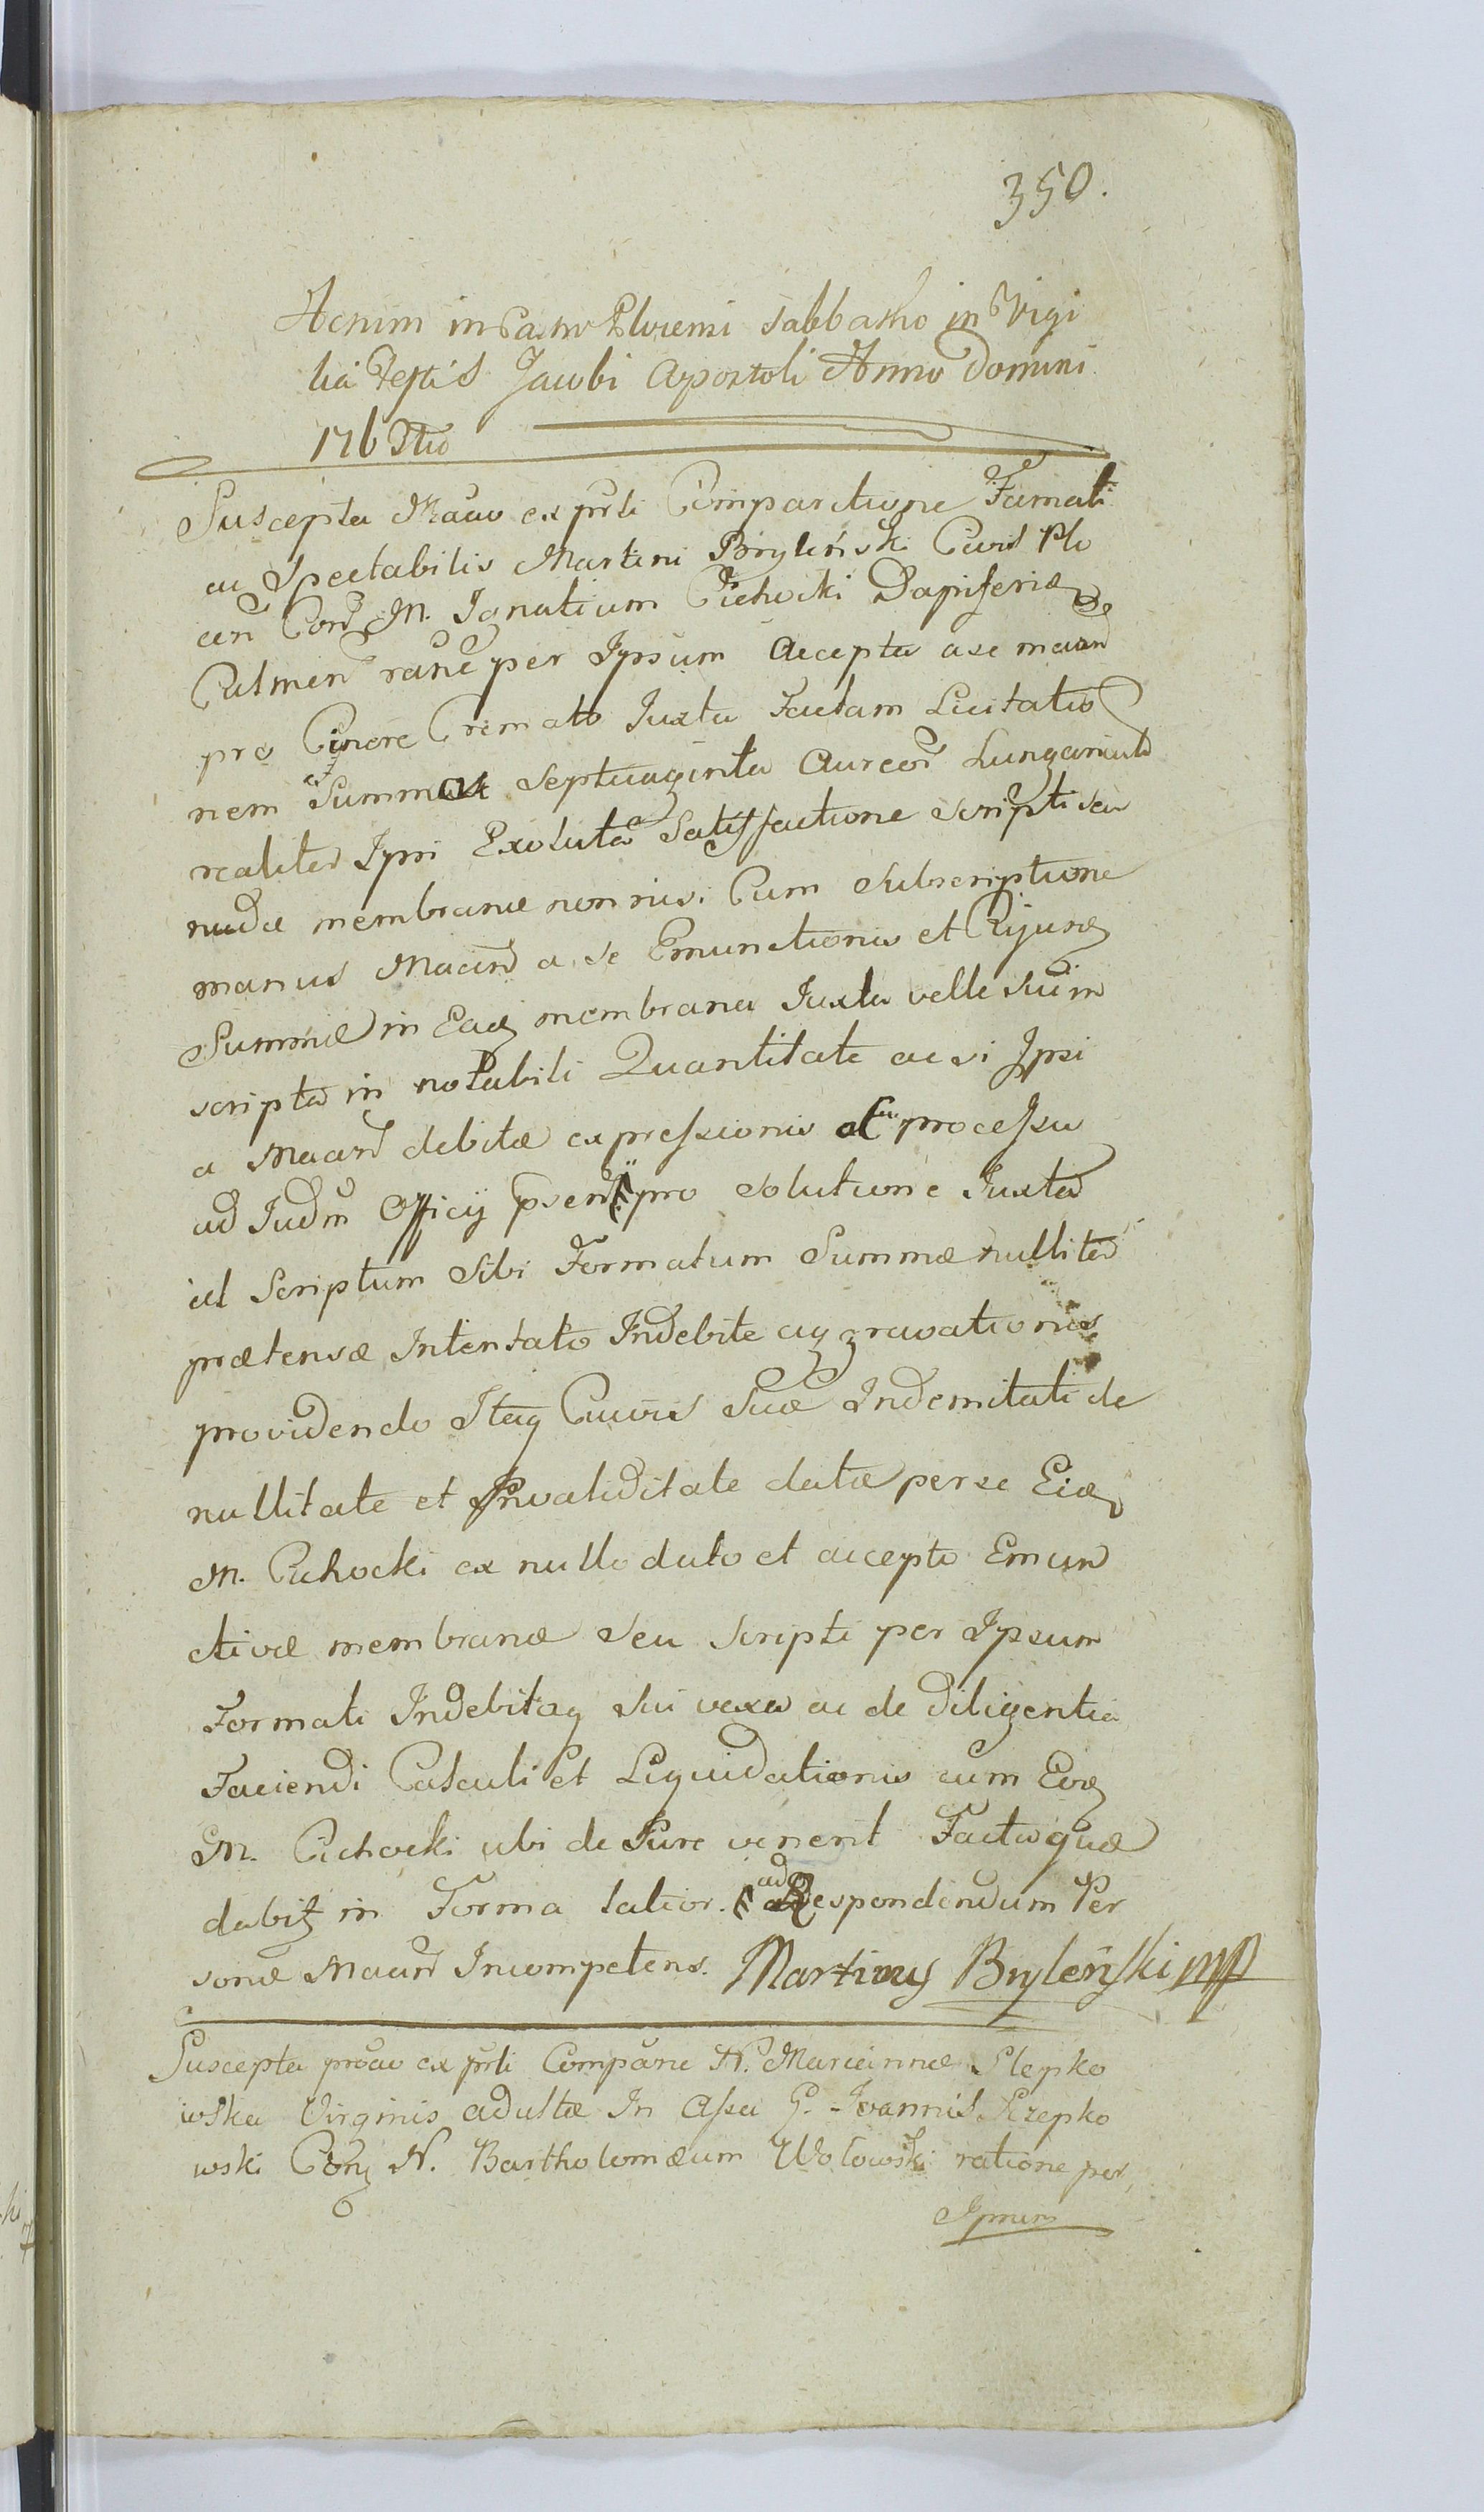 350.
Actum in Castro Plocensi Sabbatho in Vigi
lia Festi S Jacobi Apostoli Anno Domini
1763tio
Suscepta Maño ex prti Comparitione Famati
ac Spectabilis Martini Bryleński Civis Plo
cen Con M. Ignatium Cichocki Dapiferidę
Culmen rañe per Ipsum Accepta a se maan
pro Cinere Cremato Juxta Factam Licitatio
nem Summa Septuaginta Aureor Hungarical
realiter Ipsi Exoluta Satisfactione scripti seu
nudæ membranæ non nisi Cum Subscriptione
manus Maan a se Emunctionis et Cujusq
Summæ in Eadq membrana Juxta velle suum
scripta in notabili Quantitate ac si Ipsi
a Maan debitæ expressionis ac processu
ad Judm Officij pseni pro solutione Juxta
id Scriptum Sibi Formatum Summæ nulliter
prætensæ Intentato Indebite aggravationis
providendo Itaq Cuivis Suæ Indemitati de
nullitate et Invaliditate datæ per se Eidę
M. Cichocki ex nullo dato et accepto Emun
ctivæ membranæ seu scripti per Ipsum
Formati Indebitaq sui vexa ac de Diligentia
Faciendi Calculi et Liquidationis cum Eodę
M. Cichocki ubi de Jure venerit Factisquæ
dabitʒ in Forma latior. ad Respondendum Per
sonæ Maan Incompetens. Martinus Bryleński mp
Suscepta prõao ex prti Compãne N. Mariannæ Slepko
wska Virginis adultæ In Assa G. Joannis Szlepko
wski Conʒ N. Bartholomæum Wołowski ratione per
Ipsum